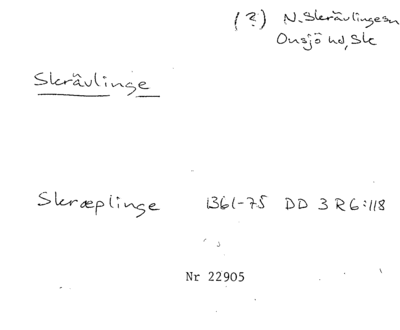 (?) N. Skrävlinges sn
Onsjö hd, Sk
Skrävlinge
Skræplinge 1361-75 DD 3 R 6:118
Nr 22905